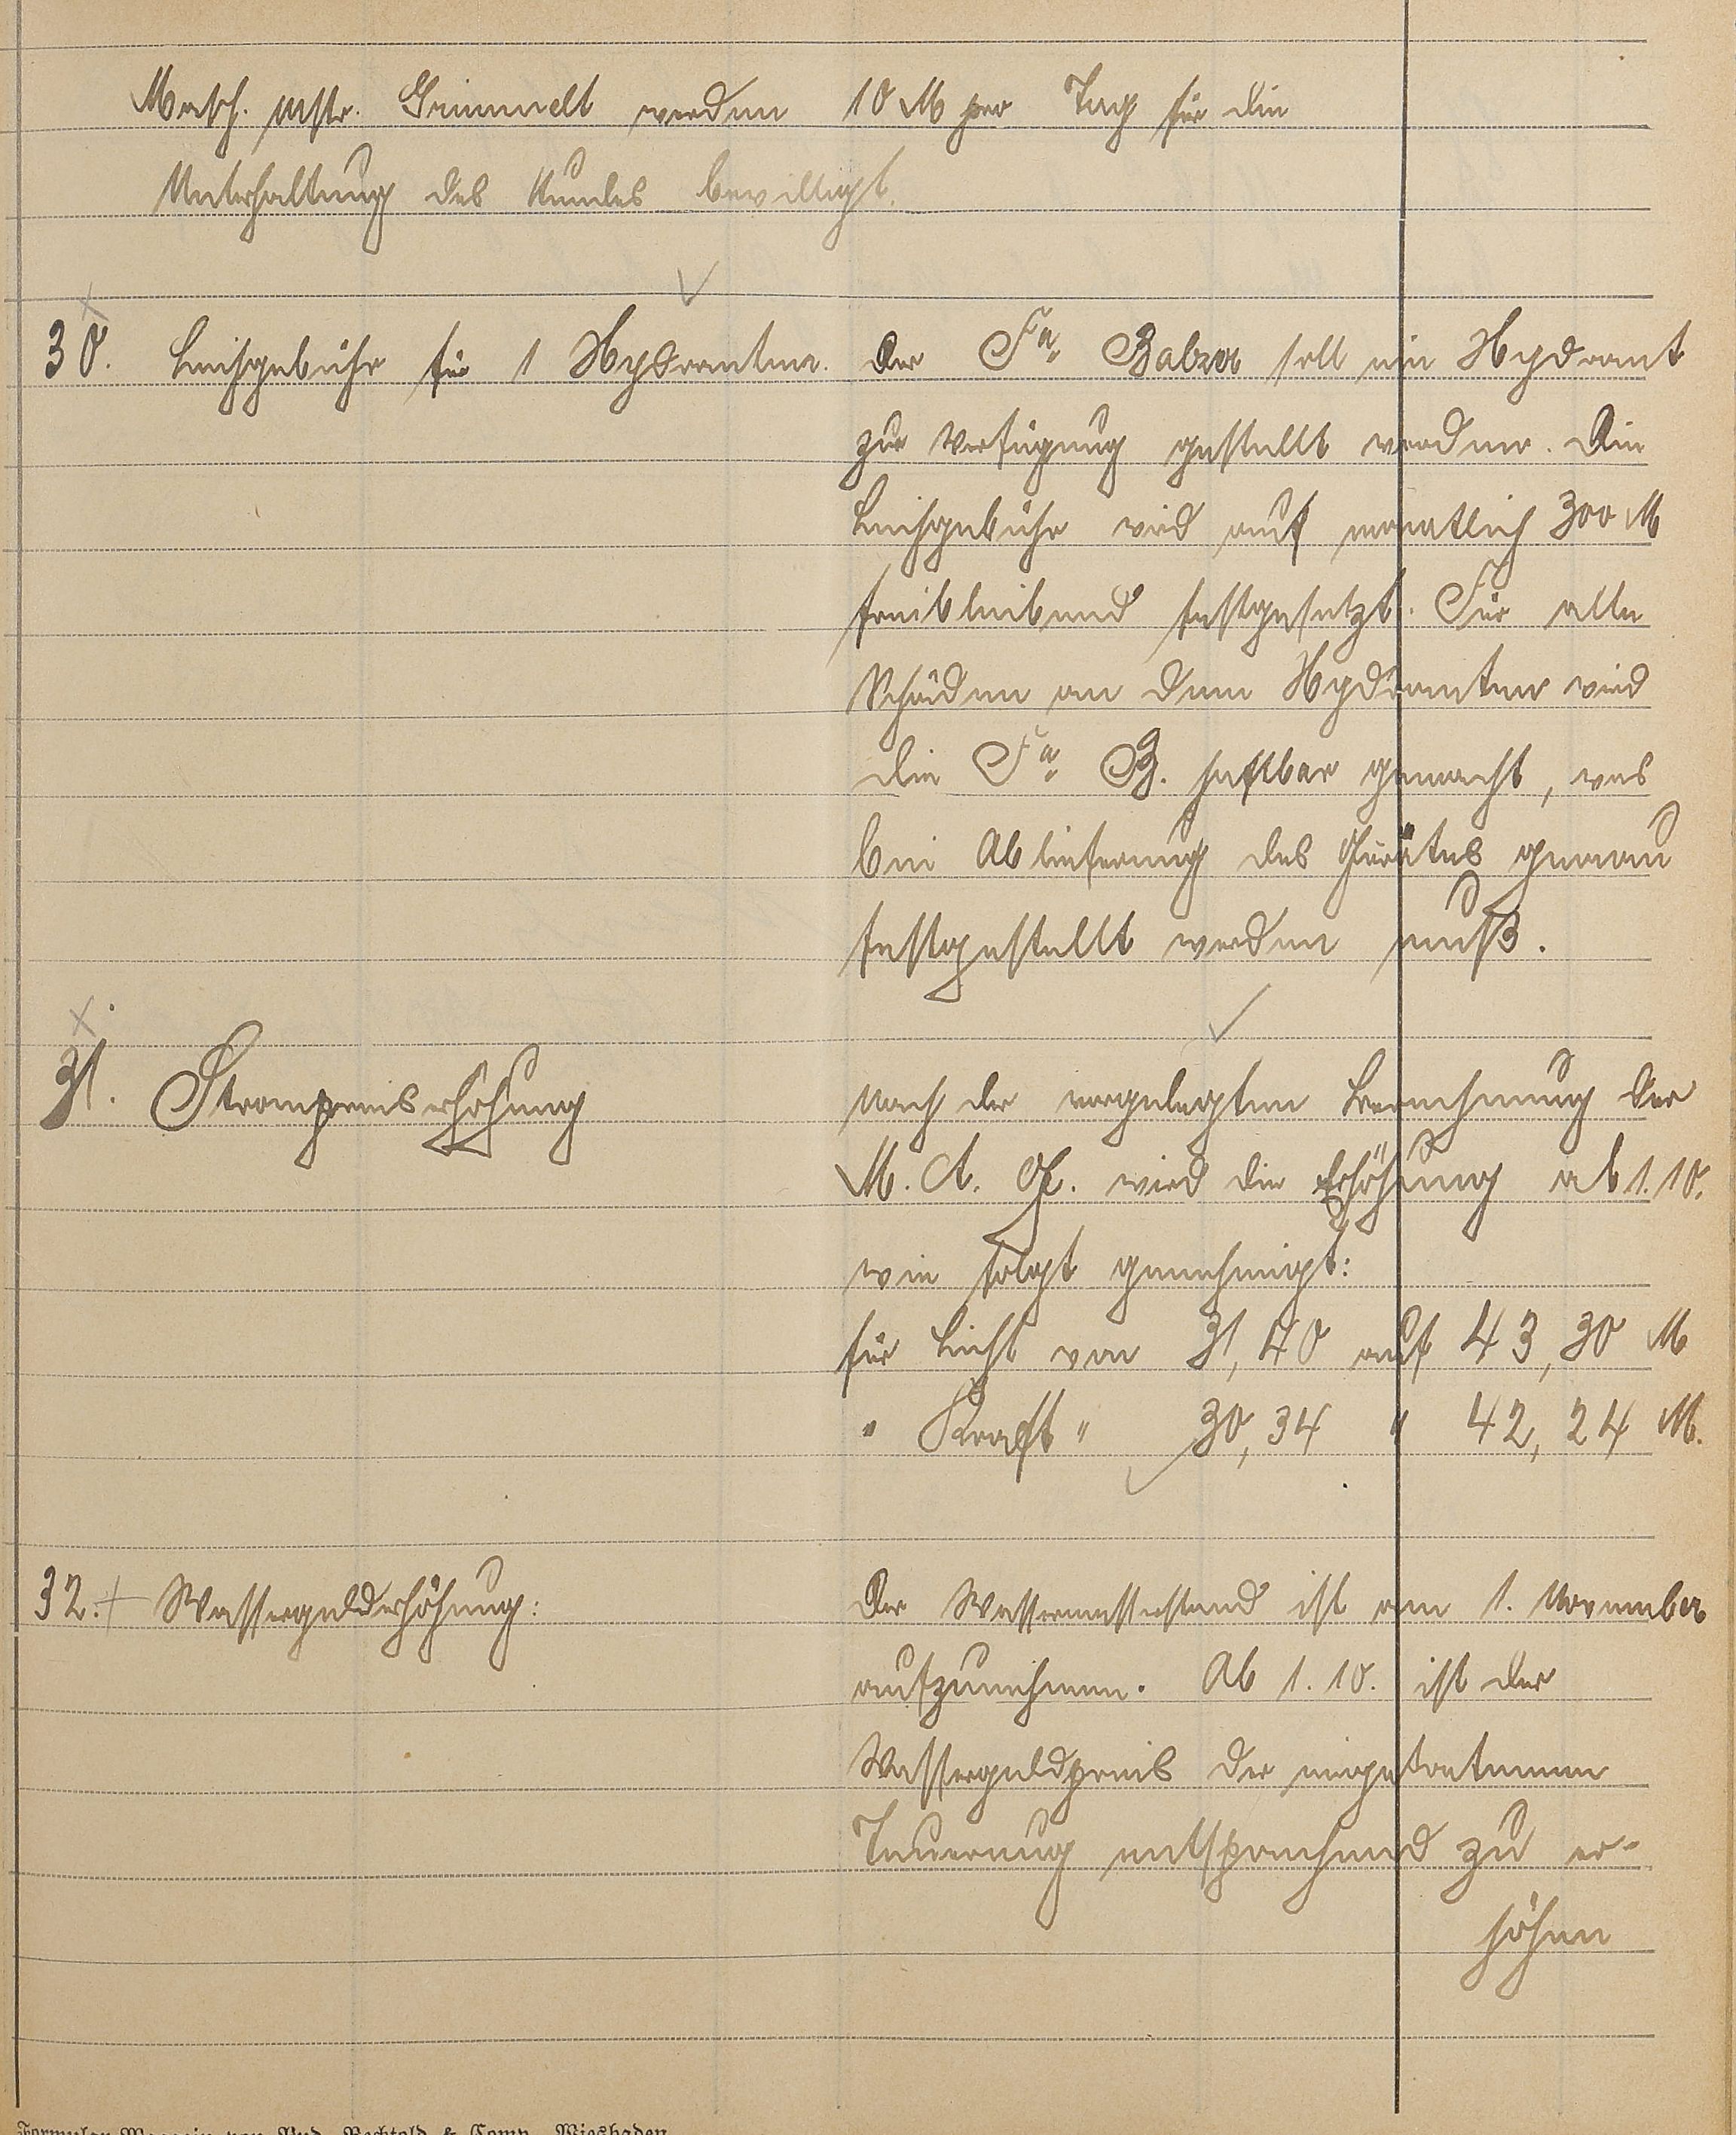 Masch. mstr. Grimmelt werden 10 M per Tag für die
Unterhaltung des Hundes bewilligt.
30. Leihgebühr für 1 Hydranten.
Der Fa. Balzer soll ein Hydrant
zur Verfügung gestellt werden. Die
Leihgebühr wird auf monatlich 300 M
freibleibend festgesetzt. Für alle
Schäden an dem Hydranten wird
die Fa. B. haftbar gemacht, was
bei Ablieferung des Gerätes genau
festgestellt werden muß.
31. Strompreiserhöhung
Nach der vorgelegten Berechnung der
M. A. G. wird die Erhöhung ab 1.10.
wie folgt genehmigt:
für Licht von 31,40 auf 43,30 M
" Kraft " 30,34 " 42,24 M.
32. Wassergelderhöhung:
Der Wassermesserstand ist am 1. November
aufzunehmen. Ab 1.10. ist der
Wassergeldpreis der eingetretenen
Teuerung entsprechend zu er-
höhen
Formular-Magazin von Rud. Bechtold & Comp., Wiesbaden